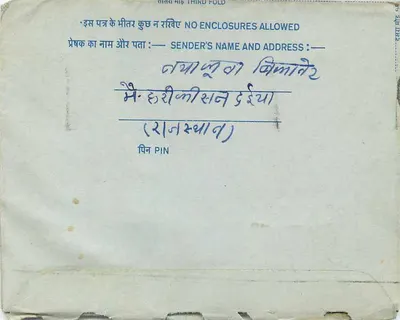 तीसरा मोड़ THIRD FOLD
• इस पत्र के भीतर कुछ न रखिए NO ENCLOSURES ALLOWED
प्रेषक का नाम और पता : — SENDER'S NAME AND ADDRESS : —
नयाकूवा बिकानेर
मै. हरीकीसन दईया
(राजस्थान)
पिन PIN